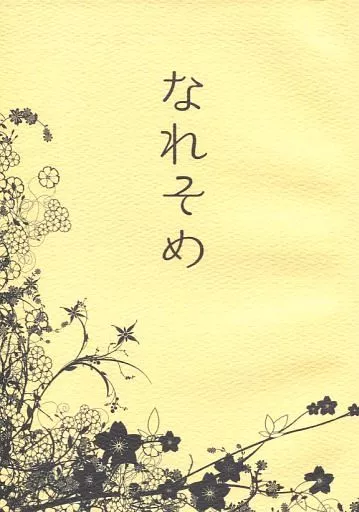 なれそめ